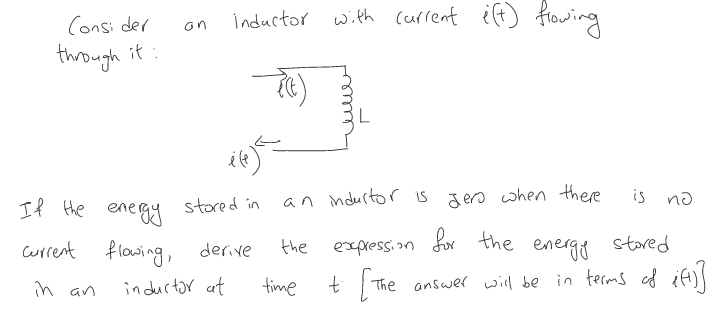 Consider an inductor with current i(t) flowing
through it :
i(t)
L
i(t)
If the energy stored in an inductor is zero when there is no
current flowing, derive the expression for the energy stored
in an inductor at time t [The answer will be in terms of i(t)]